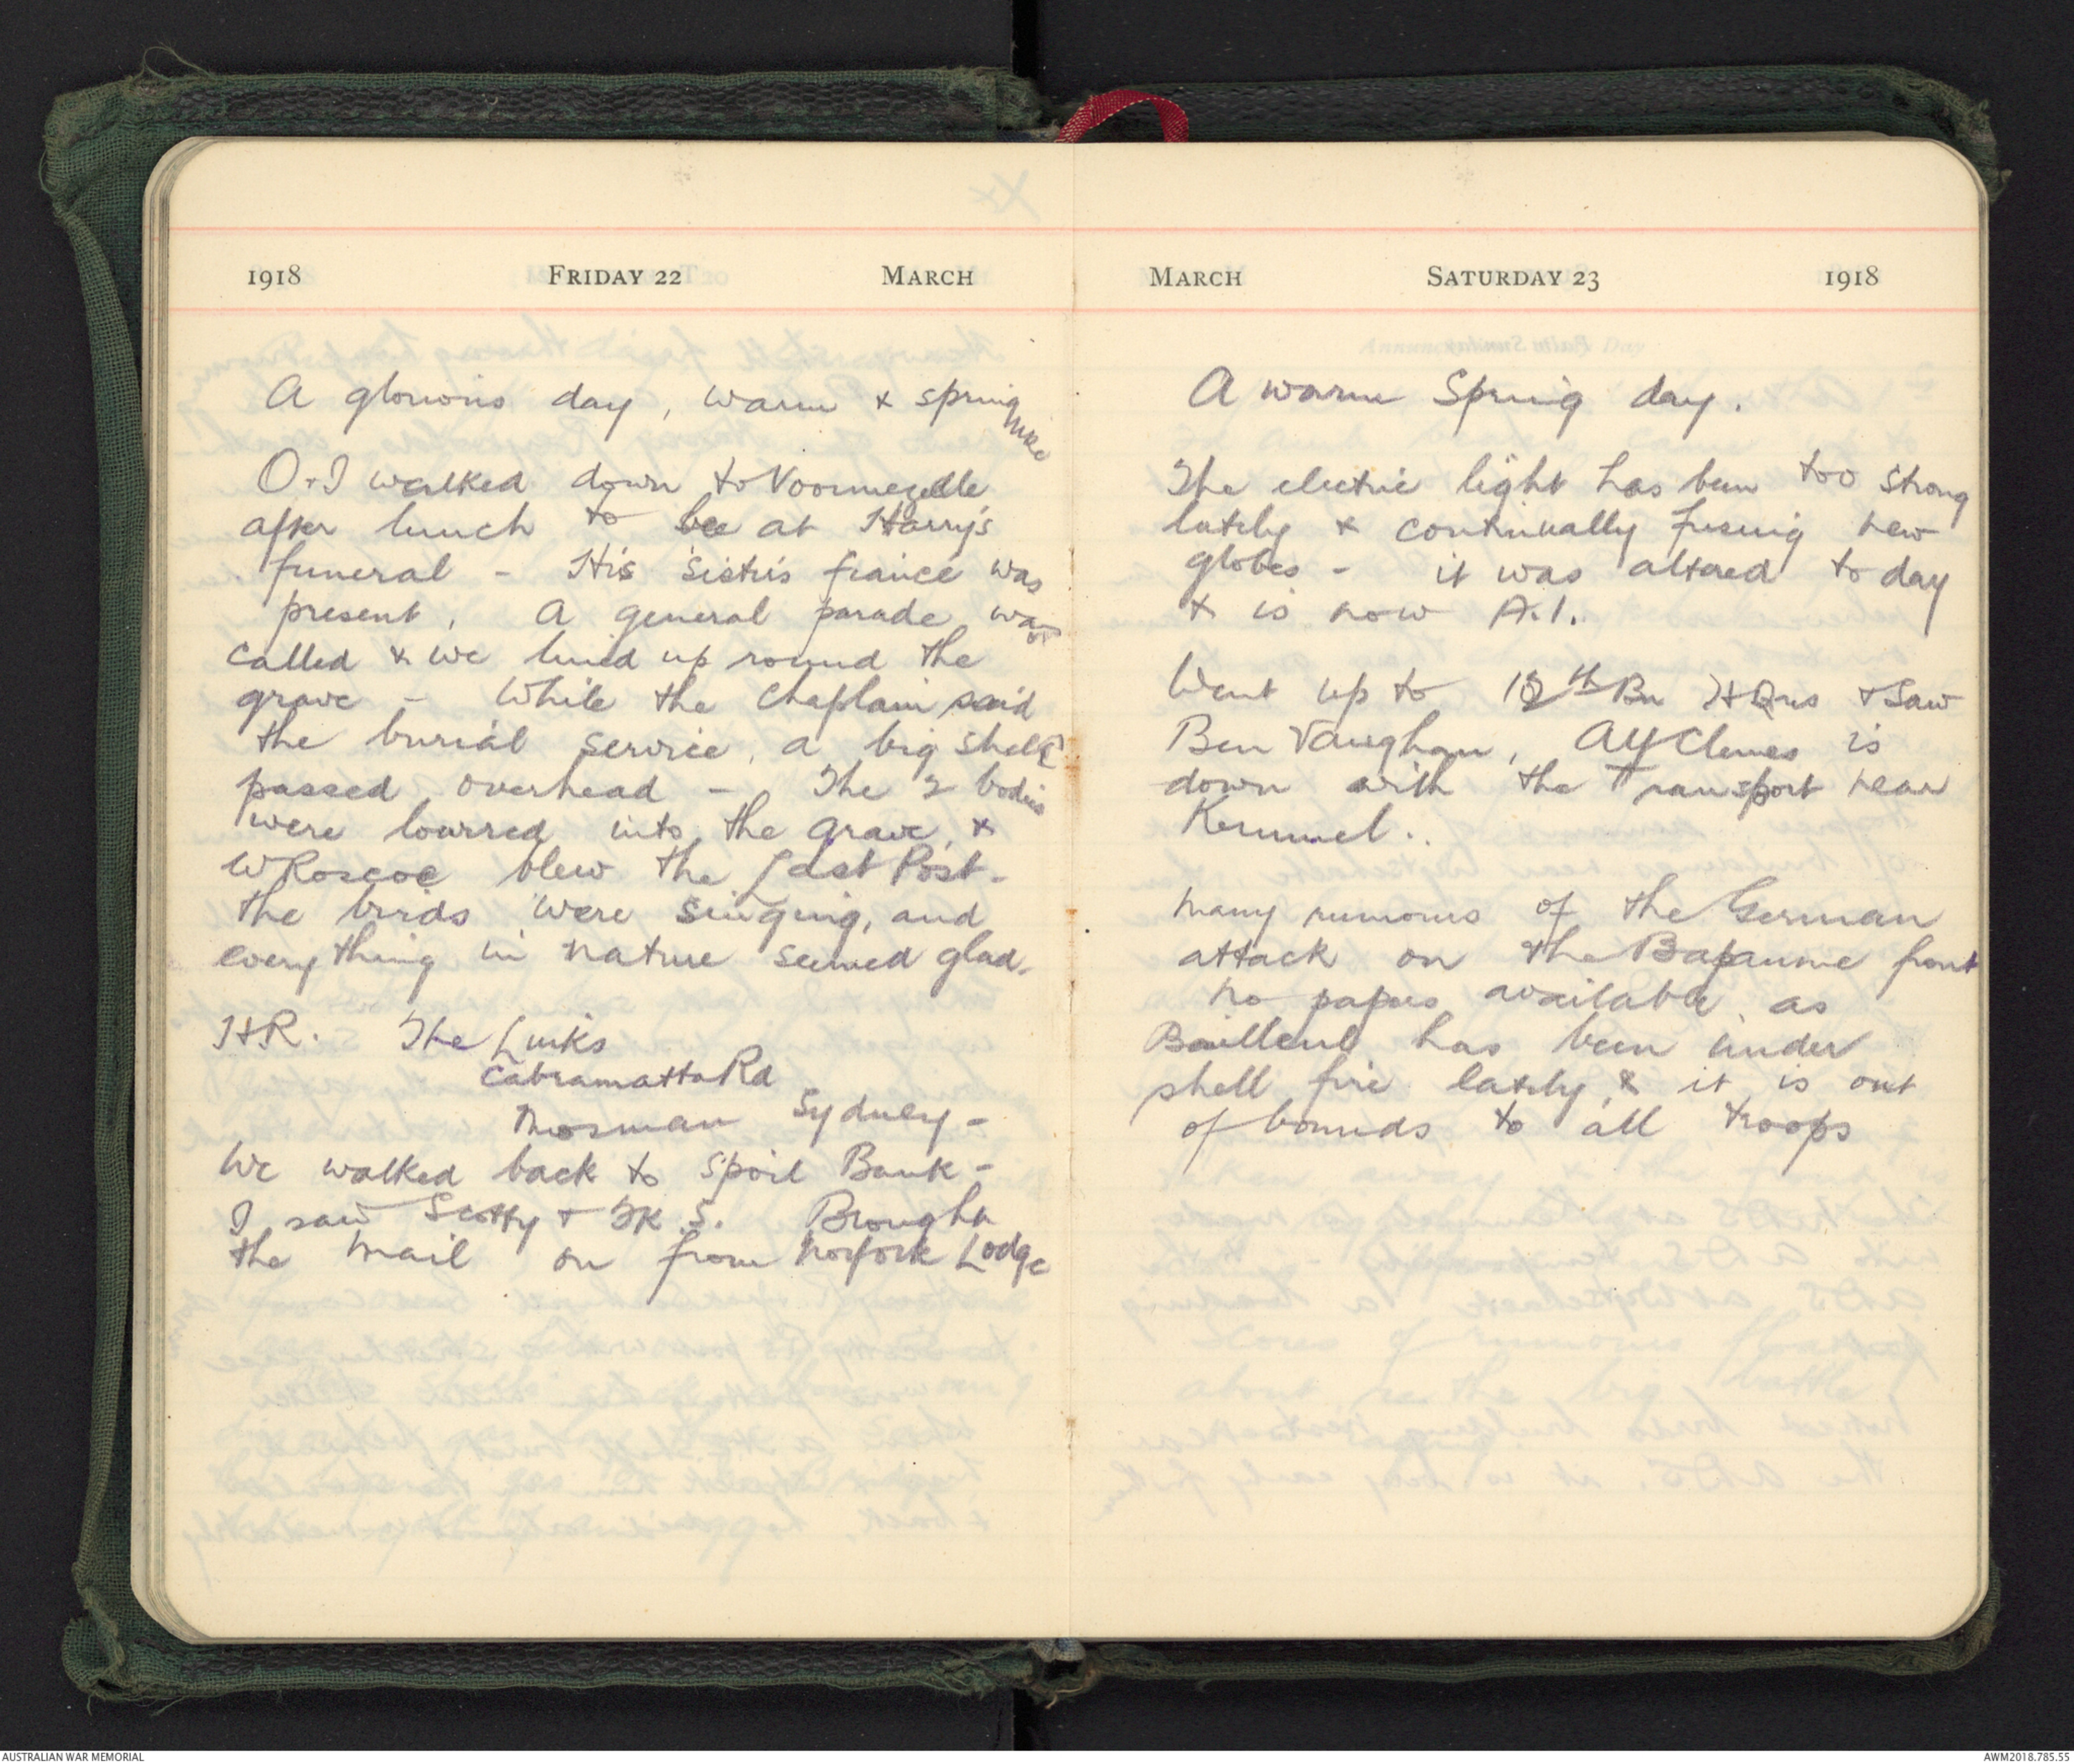 1918 FRIDAY 22 MARCH
A glorious day, warm & spring
like
O & I walked down to Voormezelle
after lunch to be at Harry's
funeral - His sister's fiancé was
present. A general parade was
called & we lined up round the
grave - While the Chaplain said
the burial service, a big shell
passed overhead - The 2 bodies
were lowered into the grave, &
W Roscoe blew the Last Post -
the birds were singing, and
everything in nature seemed glad.
H.R. The Links
Cabramatta Rd
Mosman Sydney -
We walked back to Spoil Bank -
I saw Scotty & S. Brought
the mail on from Norfork Lodge
MARCH SATURDAY 23 1918
A warm Spring day.
The electric light has been too strong
lately & continually fusing new
globes - it was altered today
& is now A.1.
Went up to 12th Bn HQrs & saw
Ben Vaughan, Clemes is
down with the Transport near
Kemmel.
Many rumours of the German
attack on the Bapaume front
No papers available as
Bailleul has been under
shell fire lately, & it is out
of bounds to all troops
AUSTRALIAN WAR MEMORIAL
AWM2018.785.55